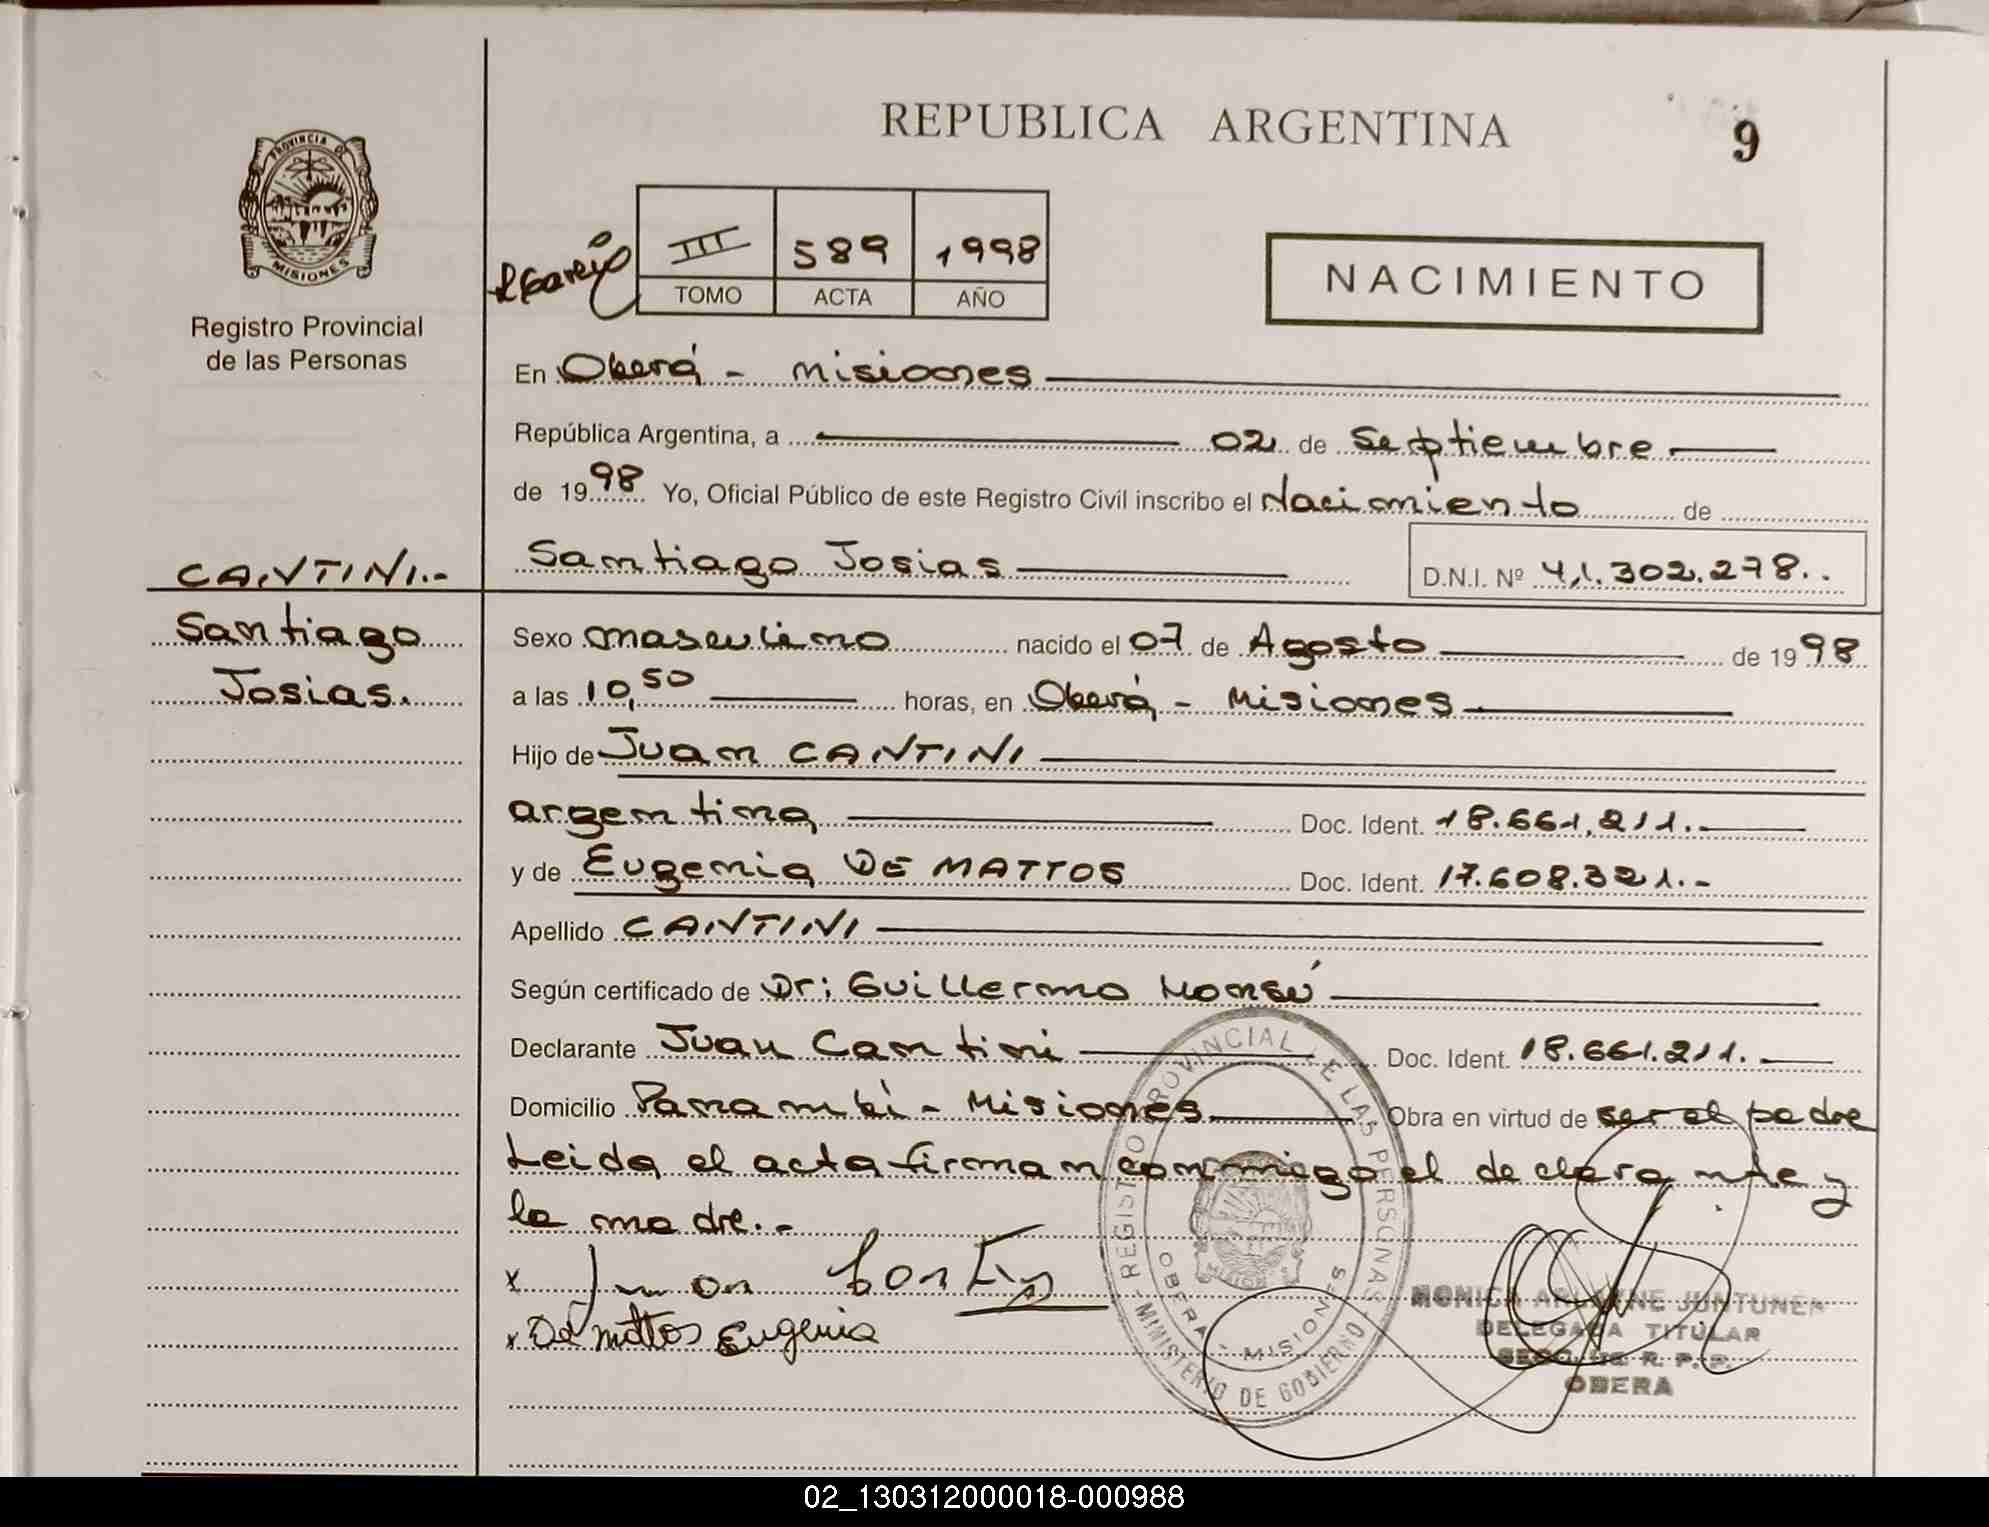 REPUBLICA ARGENTINA
9
PROVINCIA DE
MISIONES
Registro Provincial
de las Personas
III 589 1998
TOMO ACTA AÑO
NACIMIENTO
En Oberá - Misiones
República Argentina, a 02 de Septiembre
de 1998 Yo, Oficial Público de este Registro Civil inscribo el Nacimiento de
CANTINI.-
Santiago Josias D.N.I. Nº 41.302.278..
Santiago
Josias.
Sexo masculino nacido el 07 de Agosto de 1998
a las 10,50 horas, en Oberá - Misiones
Hijo de Juan CANTINI
argentina Doc. Ident. 18.661.211.
y de Eugenia DE MATTOS Doc. Ident. 17.608.321.-
Apellido CANTINI
Según certificado de Dr; Guillermo Monsú
Declarante Juan Cantini Doc. Ident. 18.661.211.
Domicilio Panambí - Misiones Obra en virtud de ser el padre
Leida el acta firman conmigo el declarante y
la madre.-
x Juan
x De mattos Eugenia
REGISTRO PROVINCIAL DE LAS PERSONAS
OBERA - MISIONES
MINISTERIO DE GOBIERNO
MONICA ARIANNE JUNTUNEN
DELEGADA TITULAR
R. P. P.
OBERA
02_130312000018-000988